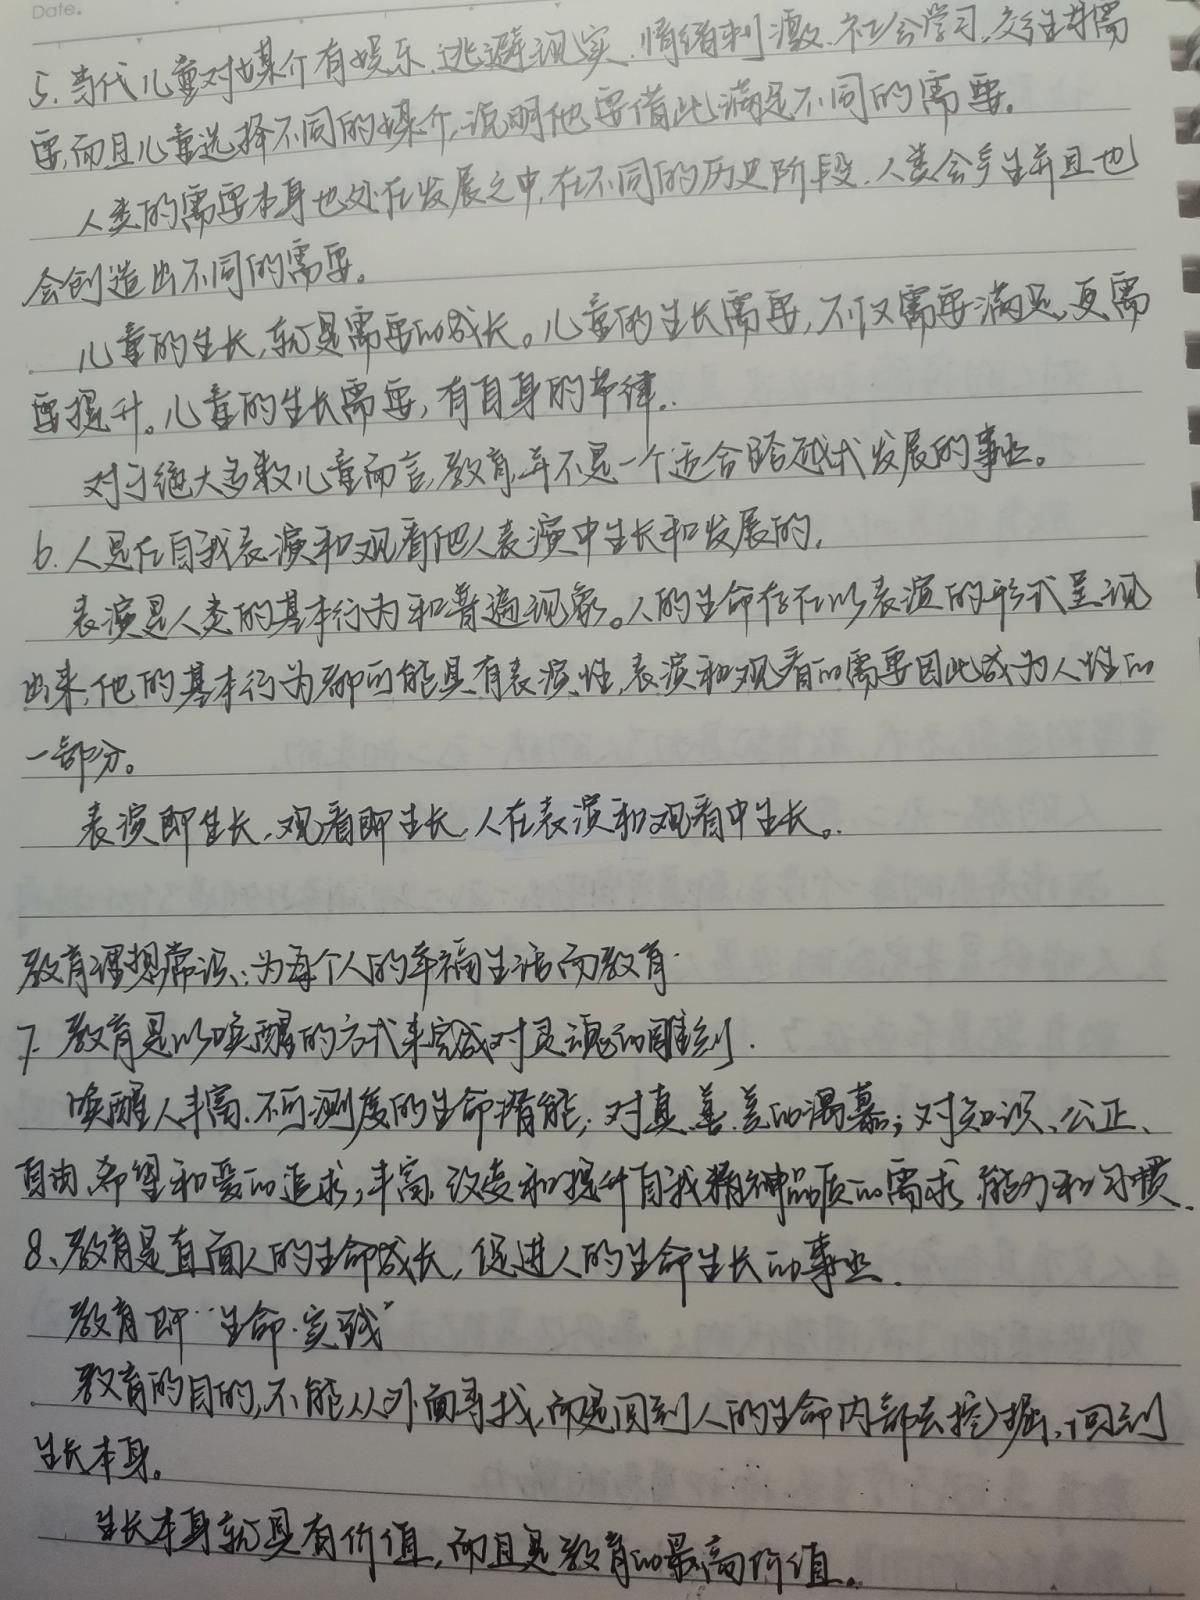 Date.
5. 当代儿童对媒介有娱乐、逃避现实、情绪刺激、社会学习、交往等需
要,而且儿童选择不同的媒介,说明他要借此满足不同的需要。
人类的需要本身也处在发展之中,在不同的历史阶段,人类会产生并且也
会创造出不同的需要。
儿童的生长,就是需要的成长。儿童的生长需要,不仅需要满足,更需
要提升。儿童的生长需要,有自身的节律。
对于绝大多数儿童而言,教育并不是一个适合跨越式发展的事业。
6. 人是在自我表演和观看他人表演中生长和发展的。
表演是人类的基本行为和普遍现象。人的生命存在以表演的形式呈现
出来,他的基本行为都可能具有表演性,表演和观看的需要因此成为人性的
一部分。
表演即生长,观看即生长,人在表演和观看中生长。
教育理想常识:为每个人的幸福生活而教育.
7. 教育是以唤醒的方式来完成对灵魂的雕刻.
唤醒人丰富、不可测度的生命潜能;对真、善、美的渴慕;对知识、公正、
自由、希望和爱的追求;丰富、改变和提升自我精神品质的需求、能力和习惯.
8、教育是直面人的生命成长,促进人的生命生长的事业.
教育即“生命·实践”
教育的目的,不能从外面寻找,而是回到人的生命内部去挖掘,回到
生长本身。
生长本身就具有价值,而且是教育的最高价值。